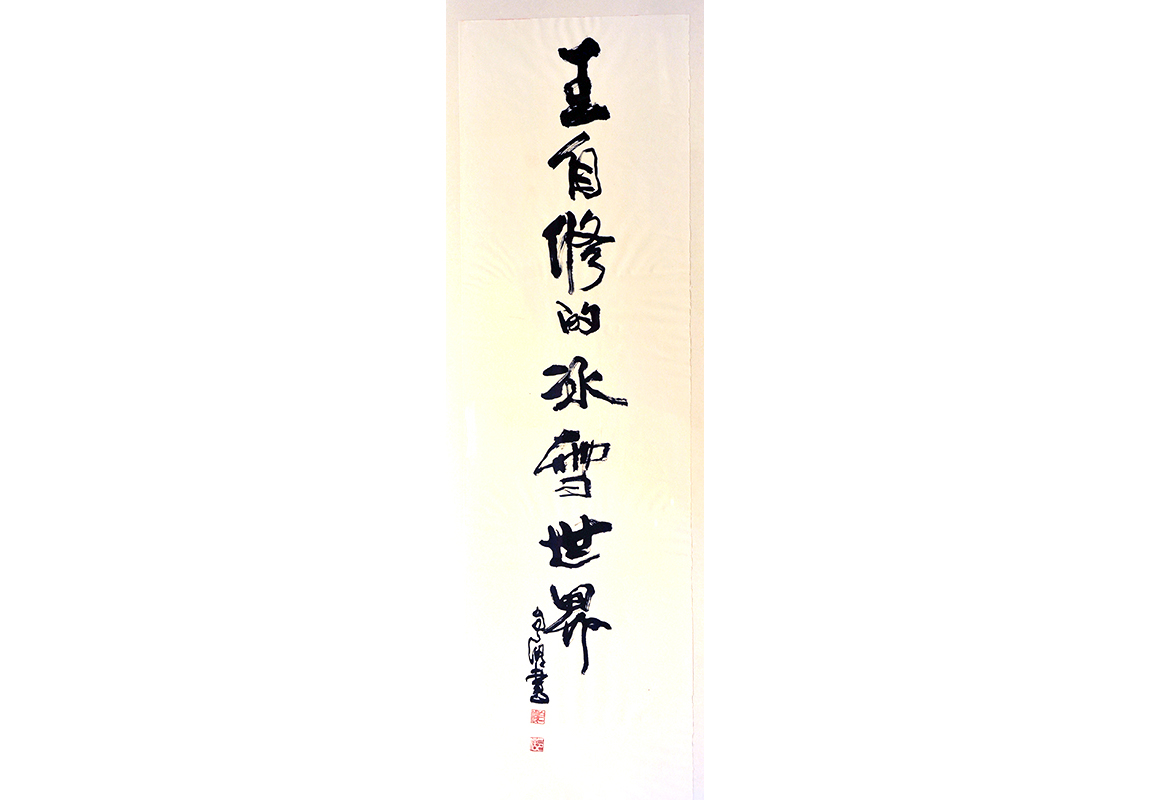 王自修的冰雪世界